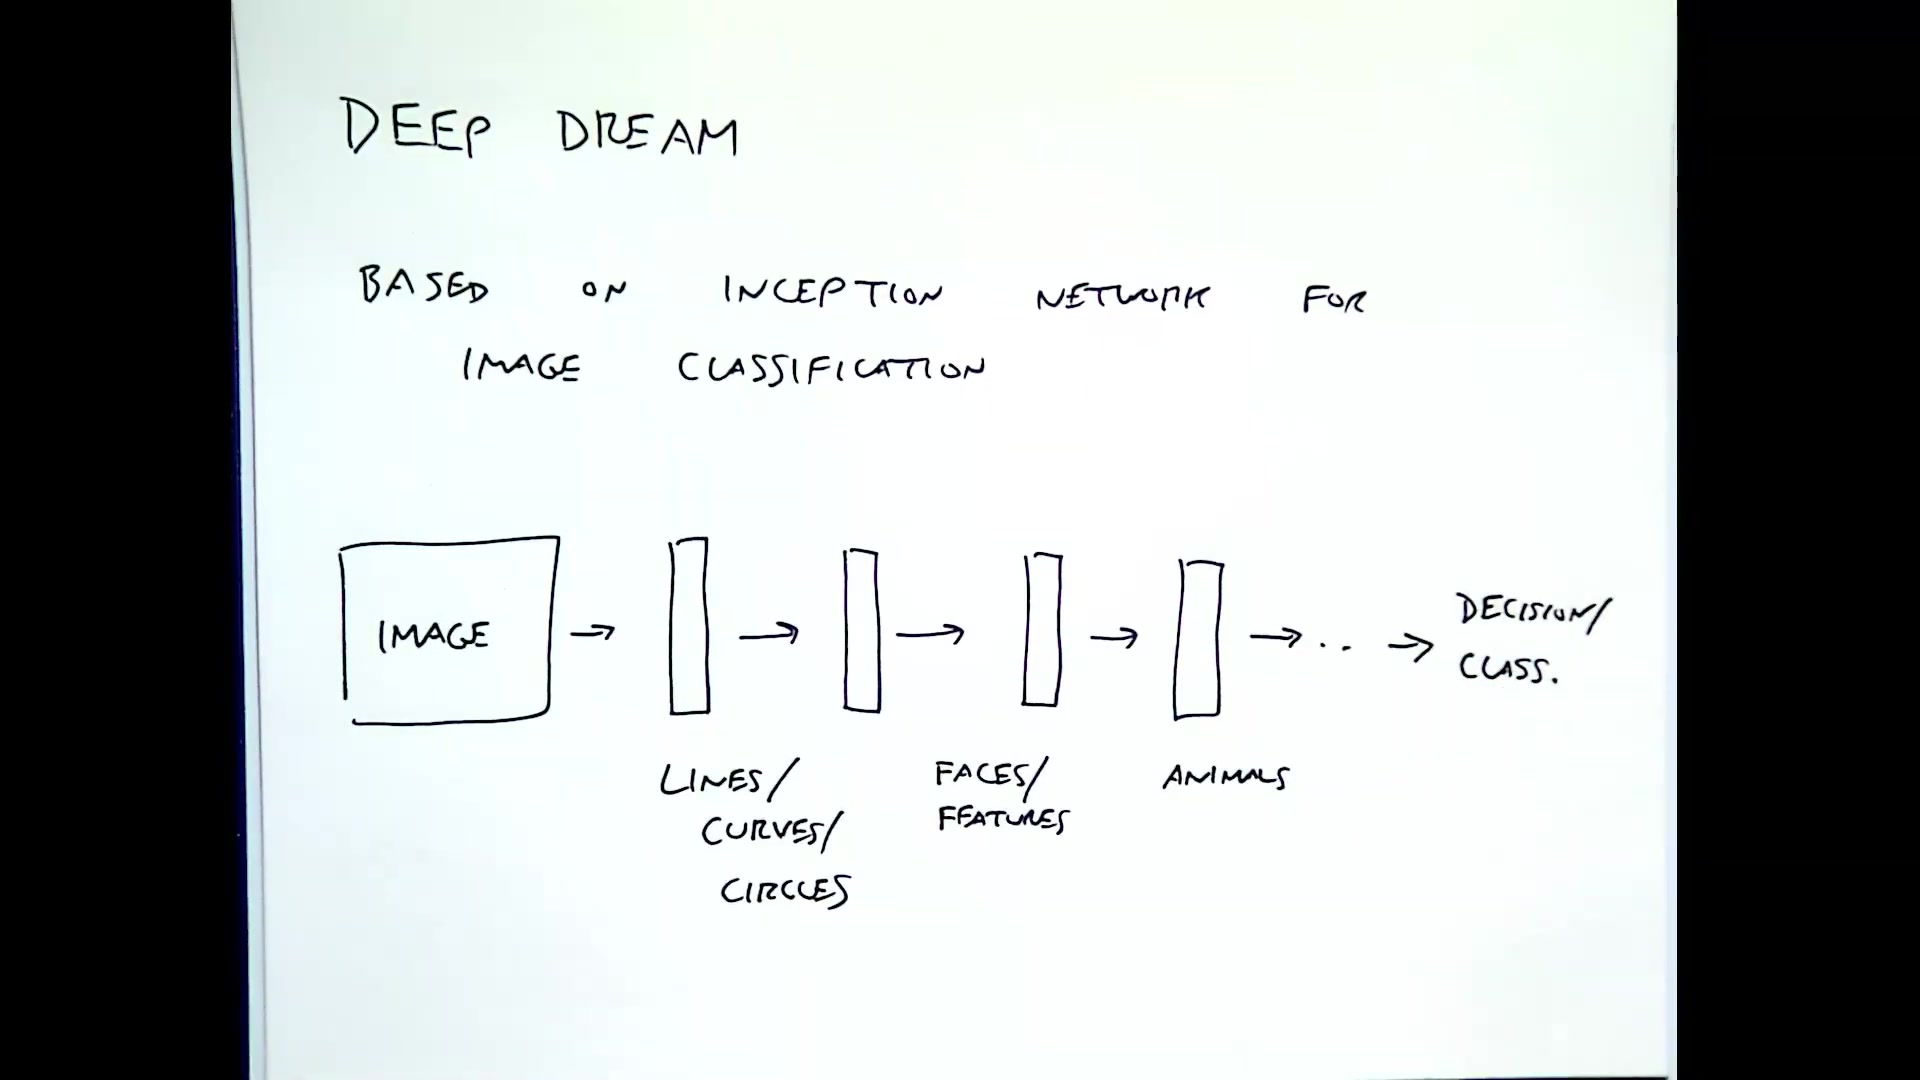 DEEP DREAM
BASED ON INCEPTION NETWORK FOR
IMAGE CLASSIFICATION
IMAGE
DECISION/
CLASS.
LINES/
CURVES/
CIRCLES
FACES/
FEATURES
ANIMALS